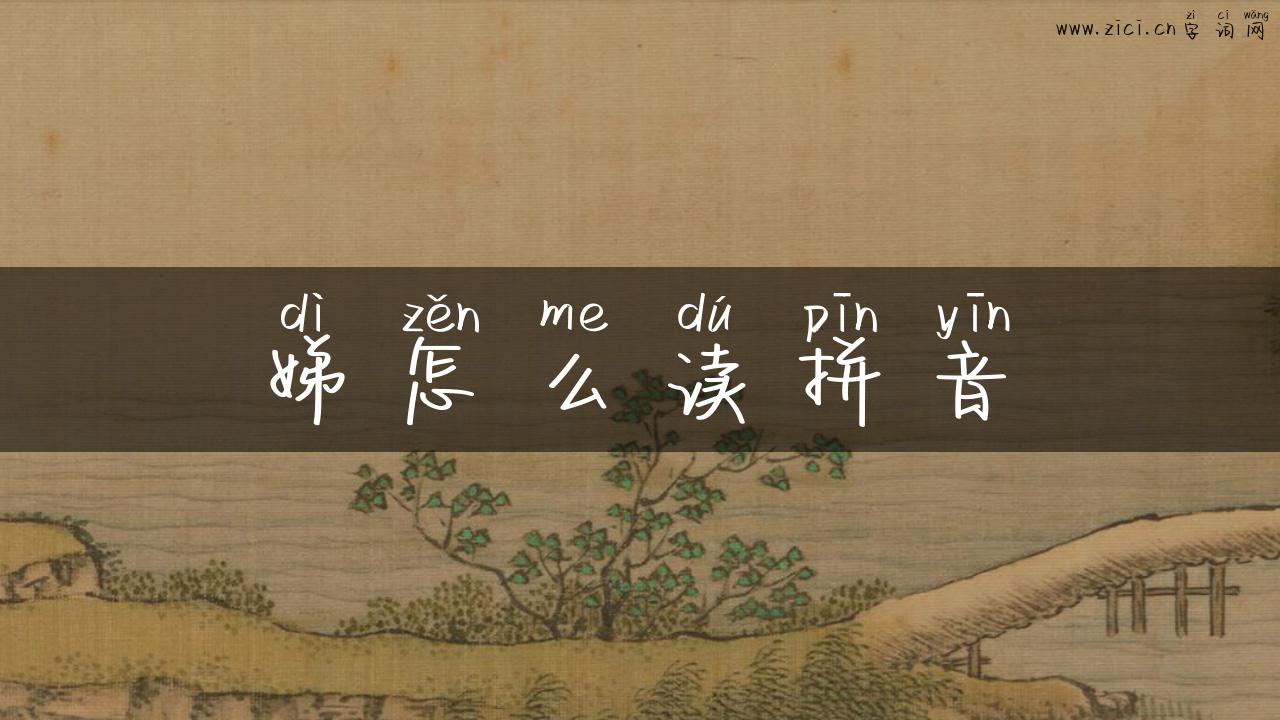 zì cí wǎng
www.zici.cn 字 词 网
dì zěn me dú pīn yīn
娣 怎 么 读 拼 音